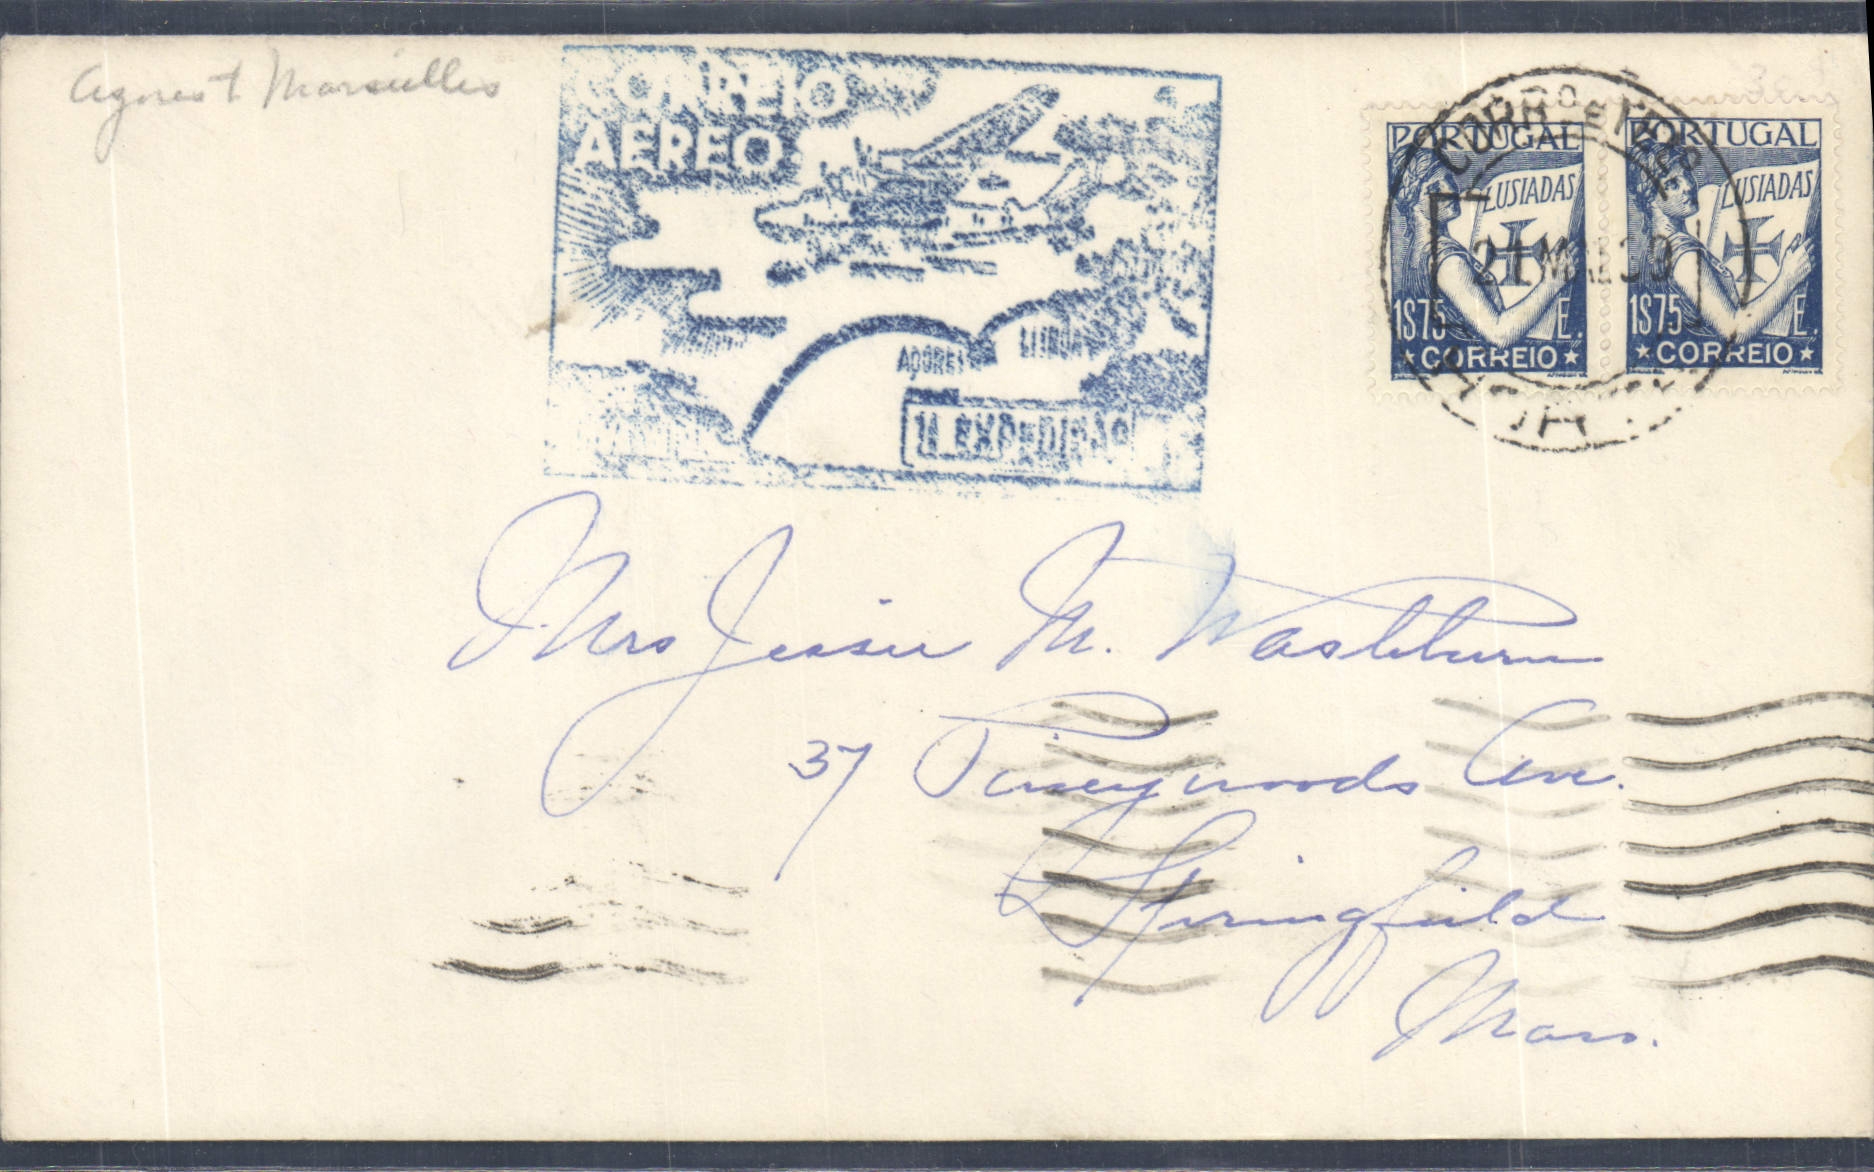 Marseilles
CORREIO
AEREO
AÇORES
LISBOA
EXPEDIÇÃO
PORTUGAL
LUSIADAS
1$75 E.
★CORREIO★
PORTUGAL
LUSIADAS
1$75 E.
★CORREIO★
21 MAI 39
Mrs Jessie M. Washburn
37 Pineywoods Ave.
Springfield
Mass.